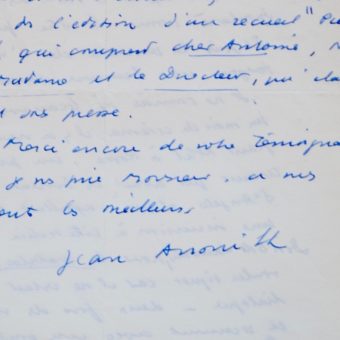 de l'édition d'un recueil "Piè
qui comprend cher Antoine, N
Madame et le Directeur, qui
sous presse.
Merci encore de votre témoigna
Je vous prie Monsieur, a mes
ent les meilleurs,
Jean Anouilh